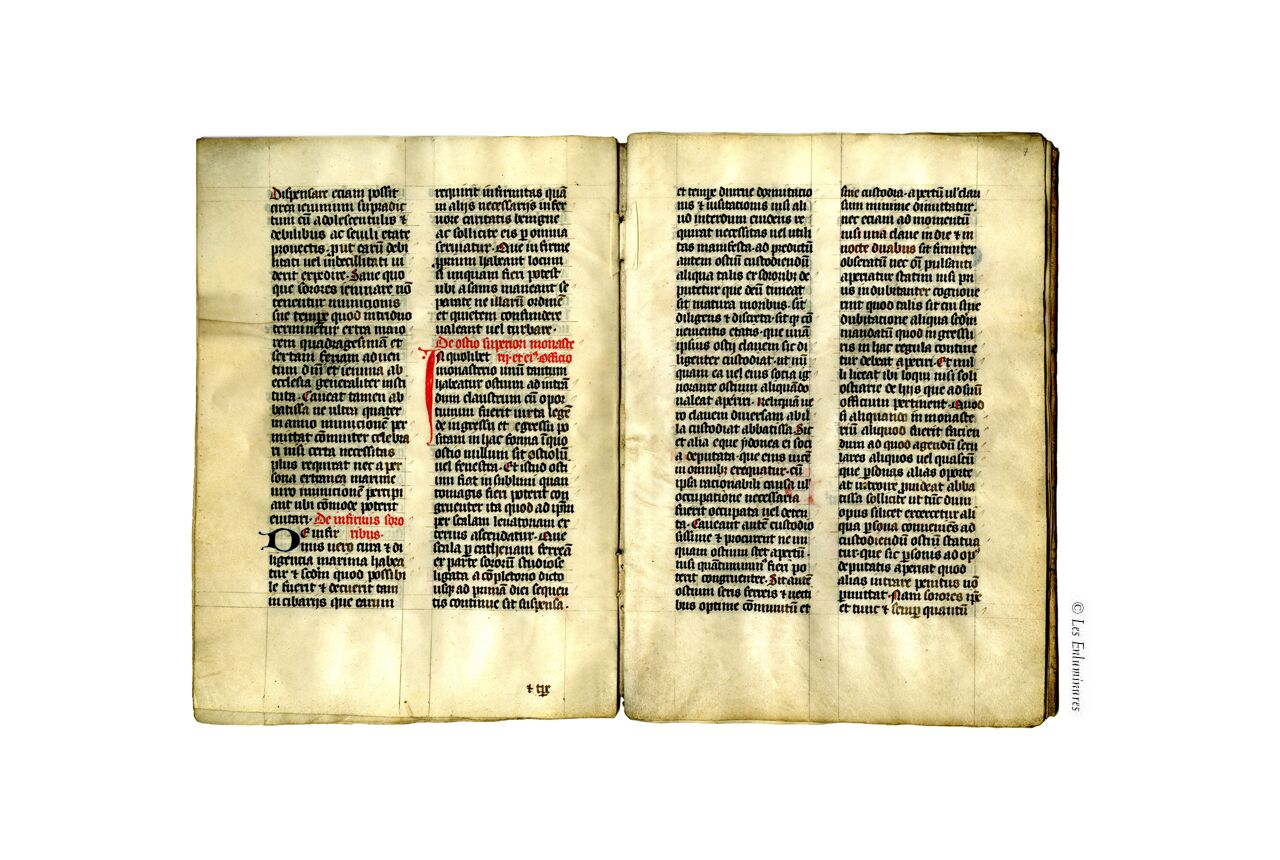 Dispensare eciam possit
circa ieiunium supradic
tum cū adolescentulis ⁊
debilibus ac seculi etate
prouectis. ꝓut earū debi
litati uel inbecillitati ui
derit expedire. Sane quo
que sorores ieiunare nō
teneantur minucionis
sue tempꝛe quod in triduo
terminetur extra maio
rem quadragesimā et
sextam feriam aduen
tum dn̄i et ieiunia ab
ecclesia generaliter insti
tuta. Caueat tamen ab
batissa ne ultra quater
in anno minucionē per
mittat cōmuniter celebra
ri nisi certa necessitas
plus requirat nec a per
sona extranea maxime
uiro minucionē percipi
ant ubi cōmode poterit
euitari. De infirmis soro
ribus.
De infir
mis uero cura ⁊ di
ligencia maxima habea
tur ⁊ scdm̄ quod possibi
le fuerit ⁊ decuerit tam
in cibarijs que earum
requirit infirmitas quā
in alijs necessarijs in fer
uore caritatis benigne
ac sollicite eis ꝑ omnia
seruiatur. Que infirme
ꝓprium habeant locum
si umquam fieri potest
ubi a sanis maneant se
parate ne illarū ordinē
et quietem confundere
ualeant uel turbare.
De ostio superiori monaste
rij et eiꝰ officio
In quolibet
monasterio unū tantum
habeatur ostium ad intrā
dum claustrum cū opor
tunum fuerit iuxta legē
de ingressu et egressu po
sitam in hac forma in quo
ostio nullum sit ostiolū
uel fenestra. Et istud osti
um fiat in sublimi quan
tomagis fieri poterit con
gruenter ita quod ad ipm̄
per scalam leuatoriam ex
terius ascendatur. Que
scala ꝑ cathenam ferreā
ex parte sororū studiose
ligata a cōpletorio dicto
usqꝫ ad primā diei sequen
tis continue sit suspensa.
⁊ tꝑe
et tempꝛe diurne dormitacio
nis ⁊ uisitacionis nisi ali
ud interdum euidens re
quirat necessitas uel utili
tas manifesta. ad predictū
autem ostiū custodiendū
aliqua talis ex sororibꝫ de
putetur que deū timeat
sit matura moribus. sit
diligens ⁊ discreta. sit qꝫ cō
uenientis etatis. que unā
ipsius ostij clauem sic di
ligenter custodiat. ut nū
quam ea uel eius socia ig
norante ostium aliquādo
ualeat aperiri. Reliquā ue
ro clauem diuersam ab il
la custodiat abbatissa. Sit
et alia eque ydonea ei soci
a deputata. que eius uicē
in omnibꝫ exequatur. cū
ipsa rationabili causa ul'
occupatione necessaria
fuerit occupata uel deten
ta. Caueant autē custodio
sissime ⁊ procurent ne un
quam ostium stet apertū.
nisi quātum minꝰ fieri po
terit congruenter. Sit autē
ostium seris ferreis ⁊ uecti
bus optime cōmunitū et
sine custodia. apertū ul' clau
sum minime dimittatur
nec eciam ad momentū
nisi una claue in die ⁊ in
nocte duabus sit firmiter
obseratū nec oī pulsanti
aperiatur statim nisi pri
us indubitanter cognoue
rint quod talis sit cui sine
dubitacione aliqua scdm̄
mandatū quod in gressu
ris in hac regula contine
tur debeat aperiri. Et nul
li liceat ibi loqui nisi soli
ostiarie de hijs que ad suū
officium pertinent. Quod
si aliquando in monaste
rio aliquod fuerit facien
dum ad quod agendū secu
lares aliquos uel quascū
que ꝑsonas alias oporte
at introire ꝓuideat abba
tissa sollicite ut tūc dum
opus silicet exercetur ali
qua ꝑsona conueniēs ad
custodiendū ostiū statua
tur. que sic ꝑsonis ad opꝰ
deputatis aperiat quod
alias intrare penitus nō
ꝑmittat. Nam sorores ip̄e
et tunc ⁊ semꝑ quantū
7
© Les Enluminures